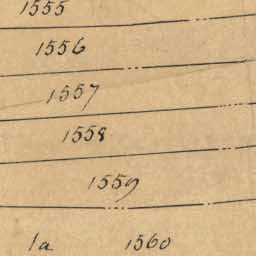 1555
1556
1557
1558
1559
1a 1560